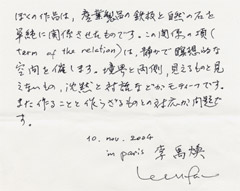 ぼくの作品は、産業製品の鉄板と自然の石を
単純に関係させたものです。この関係の項(
term of the relation)は、静かで瞑想的な
空間を催します。境界と両側、見えるものと見
えないもの、沈黙と対話などがモティーフです。
また作ることと作らざるものとの対応が問題で
す。
10. nov. 2004
in paris 李禹煥